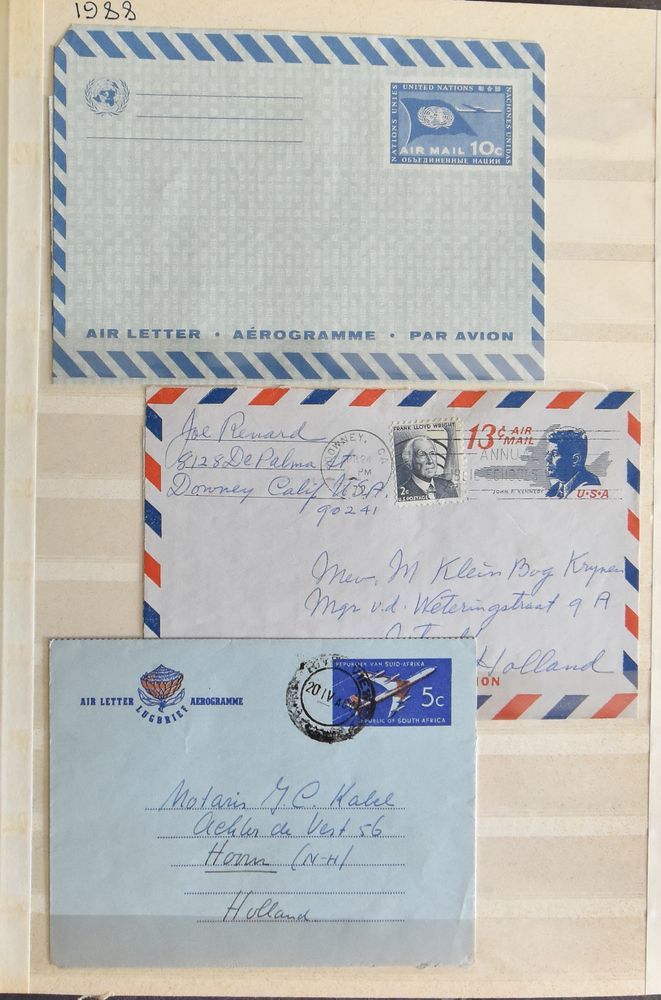 1988
UNITED NATIONS 聯合國
NATIONS UNIES
NACIONES UNIDAS
AIR MAIL 10c
ОБЪЕДИНЕННЫЕ НАЦИИ
AIR LETTER · AÉROGRAMME · PAR AVION
Joe Renard
8128 De Palma St
Downey Calif U.S.A.
90241
DOWNEY, CA
PM
FRANK LLOYD WRIGHT
2c
U.S. POSTAGE
13¢ AIR MAIL
ANNU
JOHN F. KENNEDY
U·S·A
Mev. M Klein Bog Krynen
Mgr v.d. Weteringstraat 9 A
Holland
ION
AIR LETTER AEROGRAMME
LUGBRIEF
20 IV
REPUBLIEK VAN SUID-AFRIKA
5c
REPUBLIC OF SOUTH AFRICA
Notaris J.C. Kabel
Achter de Vest 56
Hoorn (N-H)
Holland